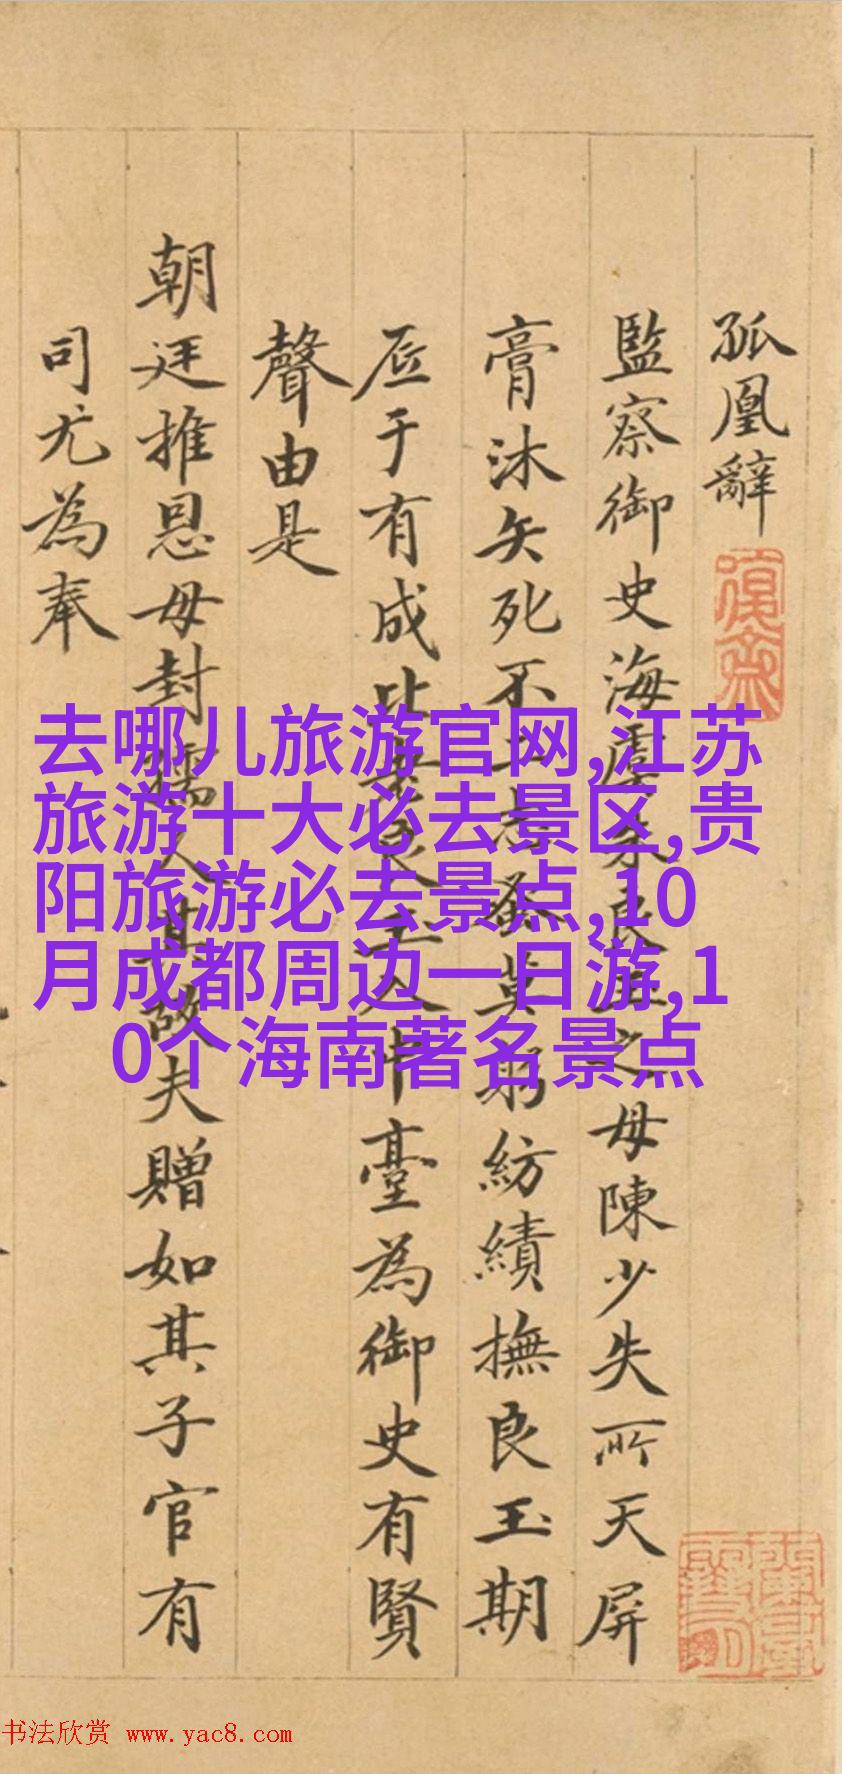 孤凰辭
監察御史海虞朱良玉之母陳少失所天屏
膏沐矢死不二志蚤莫躬紡績撫良玉期
底于有成比良玉入中臺為御史有賢
聲由是
朝廷推恩母封孺人其故夫贈如其子官有
司尤為奉
去哪儿旅游官网,江苏
旅游十大必去景区,贵
阳旅游必去景点,10
月成都周边一日游,1
0个海南著名景点
书法欣赏 www.yac8.com